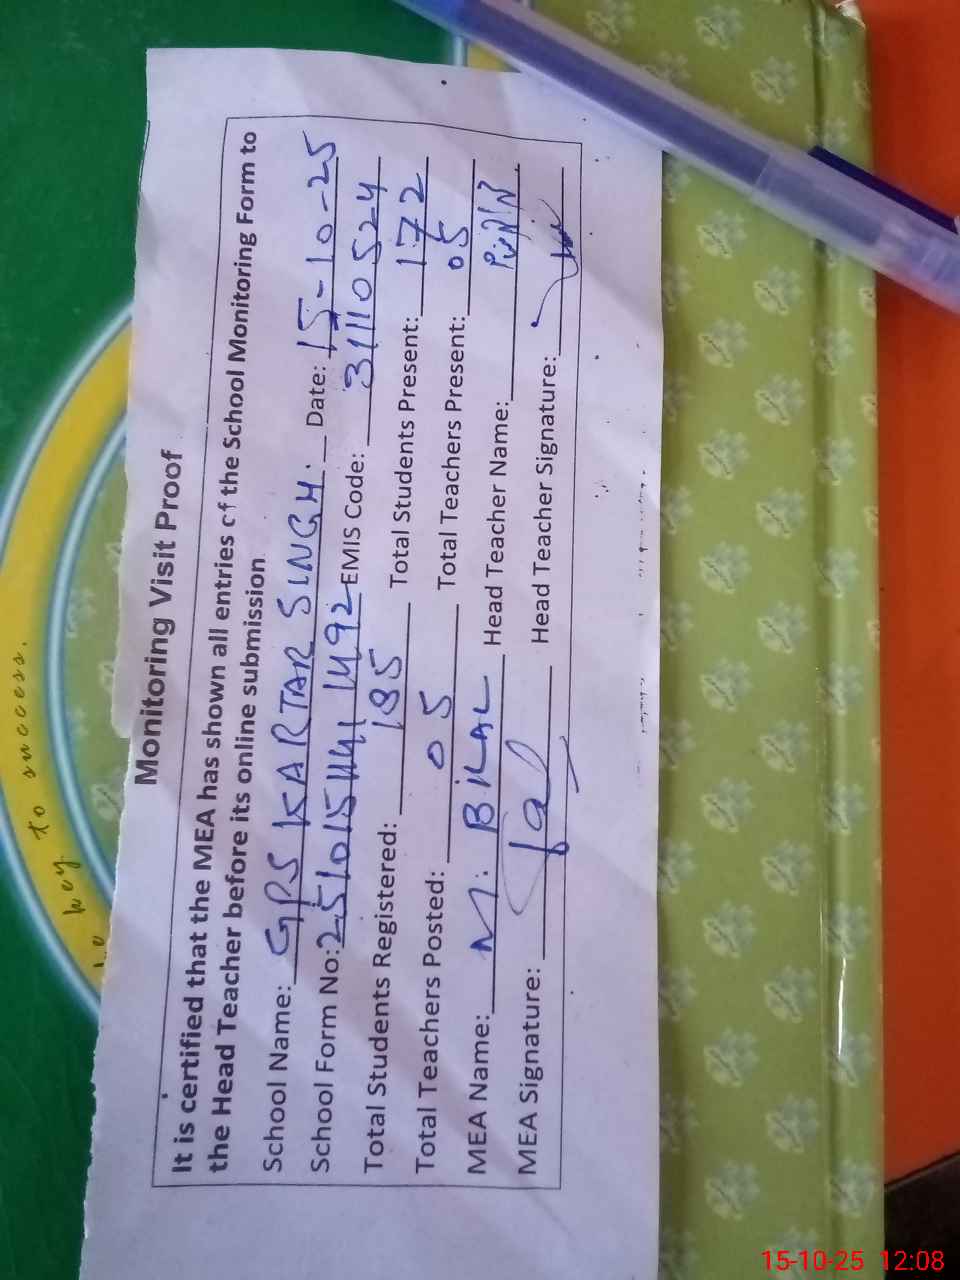 be key to success.
Monitoring Visit Proof
It is certified that the MEA has shown all entries of the School Monitoring Form to
the Head Teacher before its online submission
School Name: GPS KARTAR SINGH. Date: 15-10-25
School Form No: EMIS Code: 31110524
Total Students Registered: 185 Total Students Present: 172
Total Teachers Posted: 05 Total Teachers Present: 05
MEA Name: M. BILAL Head Teacher Name:
MEA Signature: Head Teacher Signature:
15-10-25 12:08